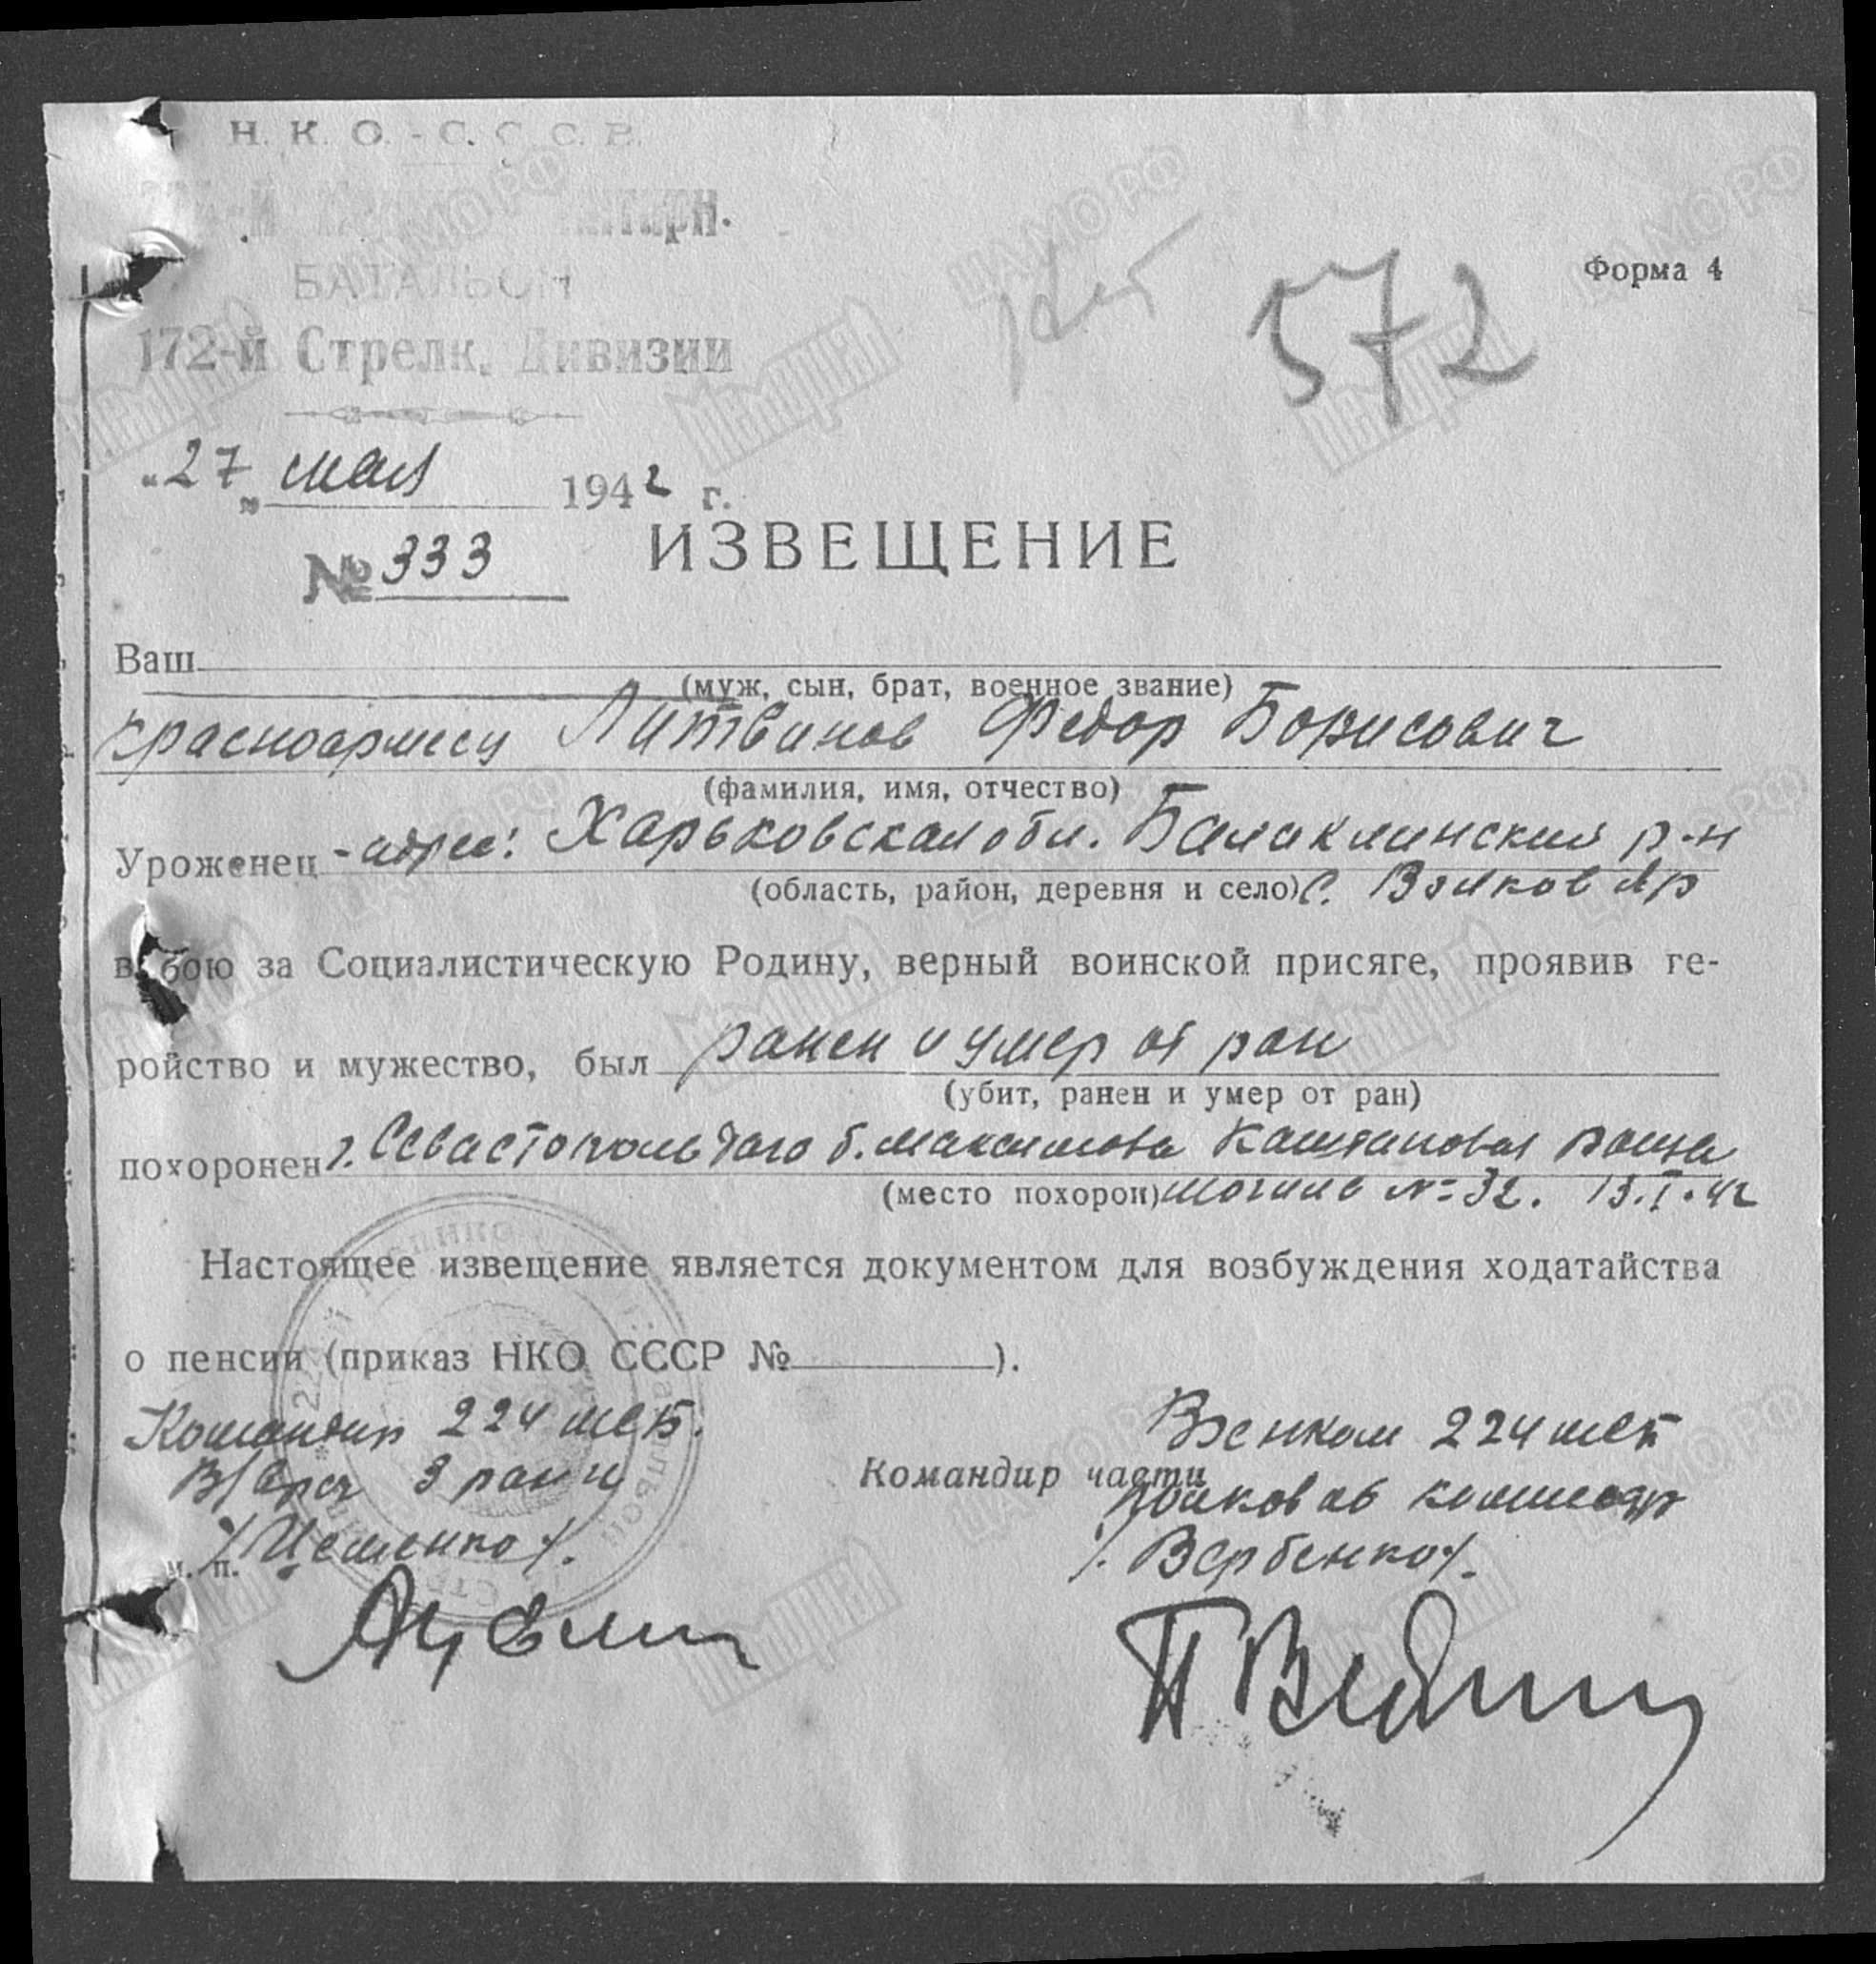 Н. К. О. - С. С. С. Р.
БАТАЛЬОН
172-й Стрелк. Дивизии
Форма 4
572
„27„ мая 1942 г.
№ 333
ИЗВЕЩЕНИЕ
Ваш
(муж, сын, брат, военное звание)
Красноармеец Литвинов Федор Борисович
(фамилия, имя, отчество)
Уроженец - адрес: Харьковская обл. Балаклинский р-н
(область, район, деревня и село) с. Волков Яр
в бою за Социалистическую Родину, верный воинской присяге, проявив ге-
ройство и мужество, был ранен и умер от ран
(убит, ранен и умер от ран)
похоронен г. Севастополь дача б. Максимова Каштановая роща
(место похорон) могила № 32. 13.I.42
Настоящее извещение является документом для возбуждения ходатайства
о пенсии (приказ НКО СССР №      ).
Командир 224 мсб.
В/врач 3 ранга
/Цешенко/.
м. п.
Командир части
Военком 224 мсб
полковой комиссар
/. Вербенко/.